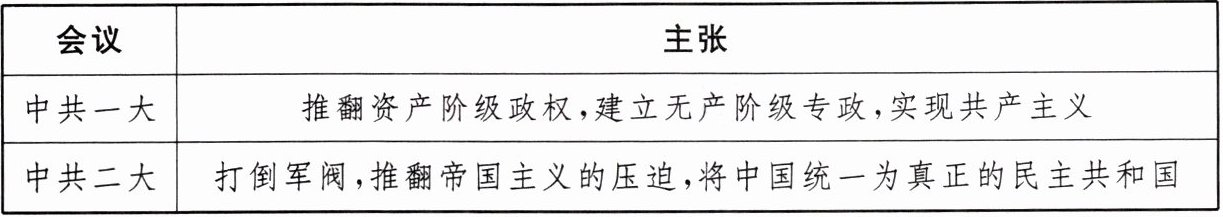 会议 主张
中共一大 推翻资产阶级政权,建立无产阶级专政,实现共产主义
中共二大 打倒军阀,推翻帝国主义的压迫,将中国统一为真正的民主共和国